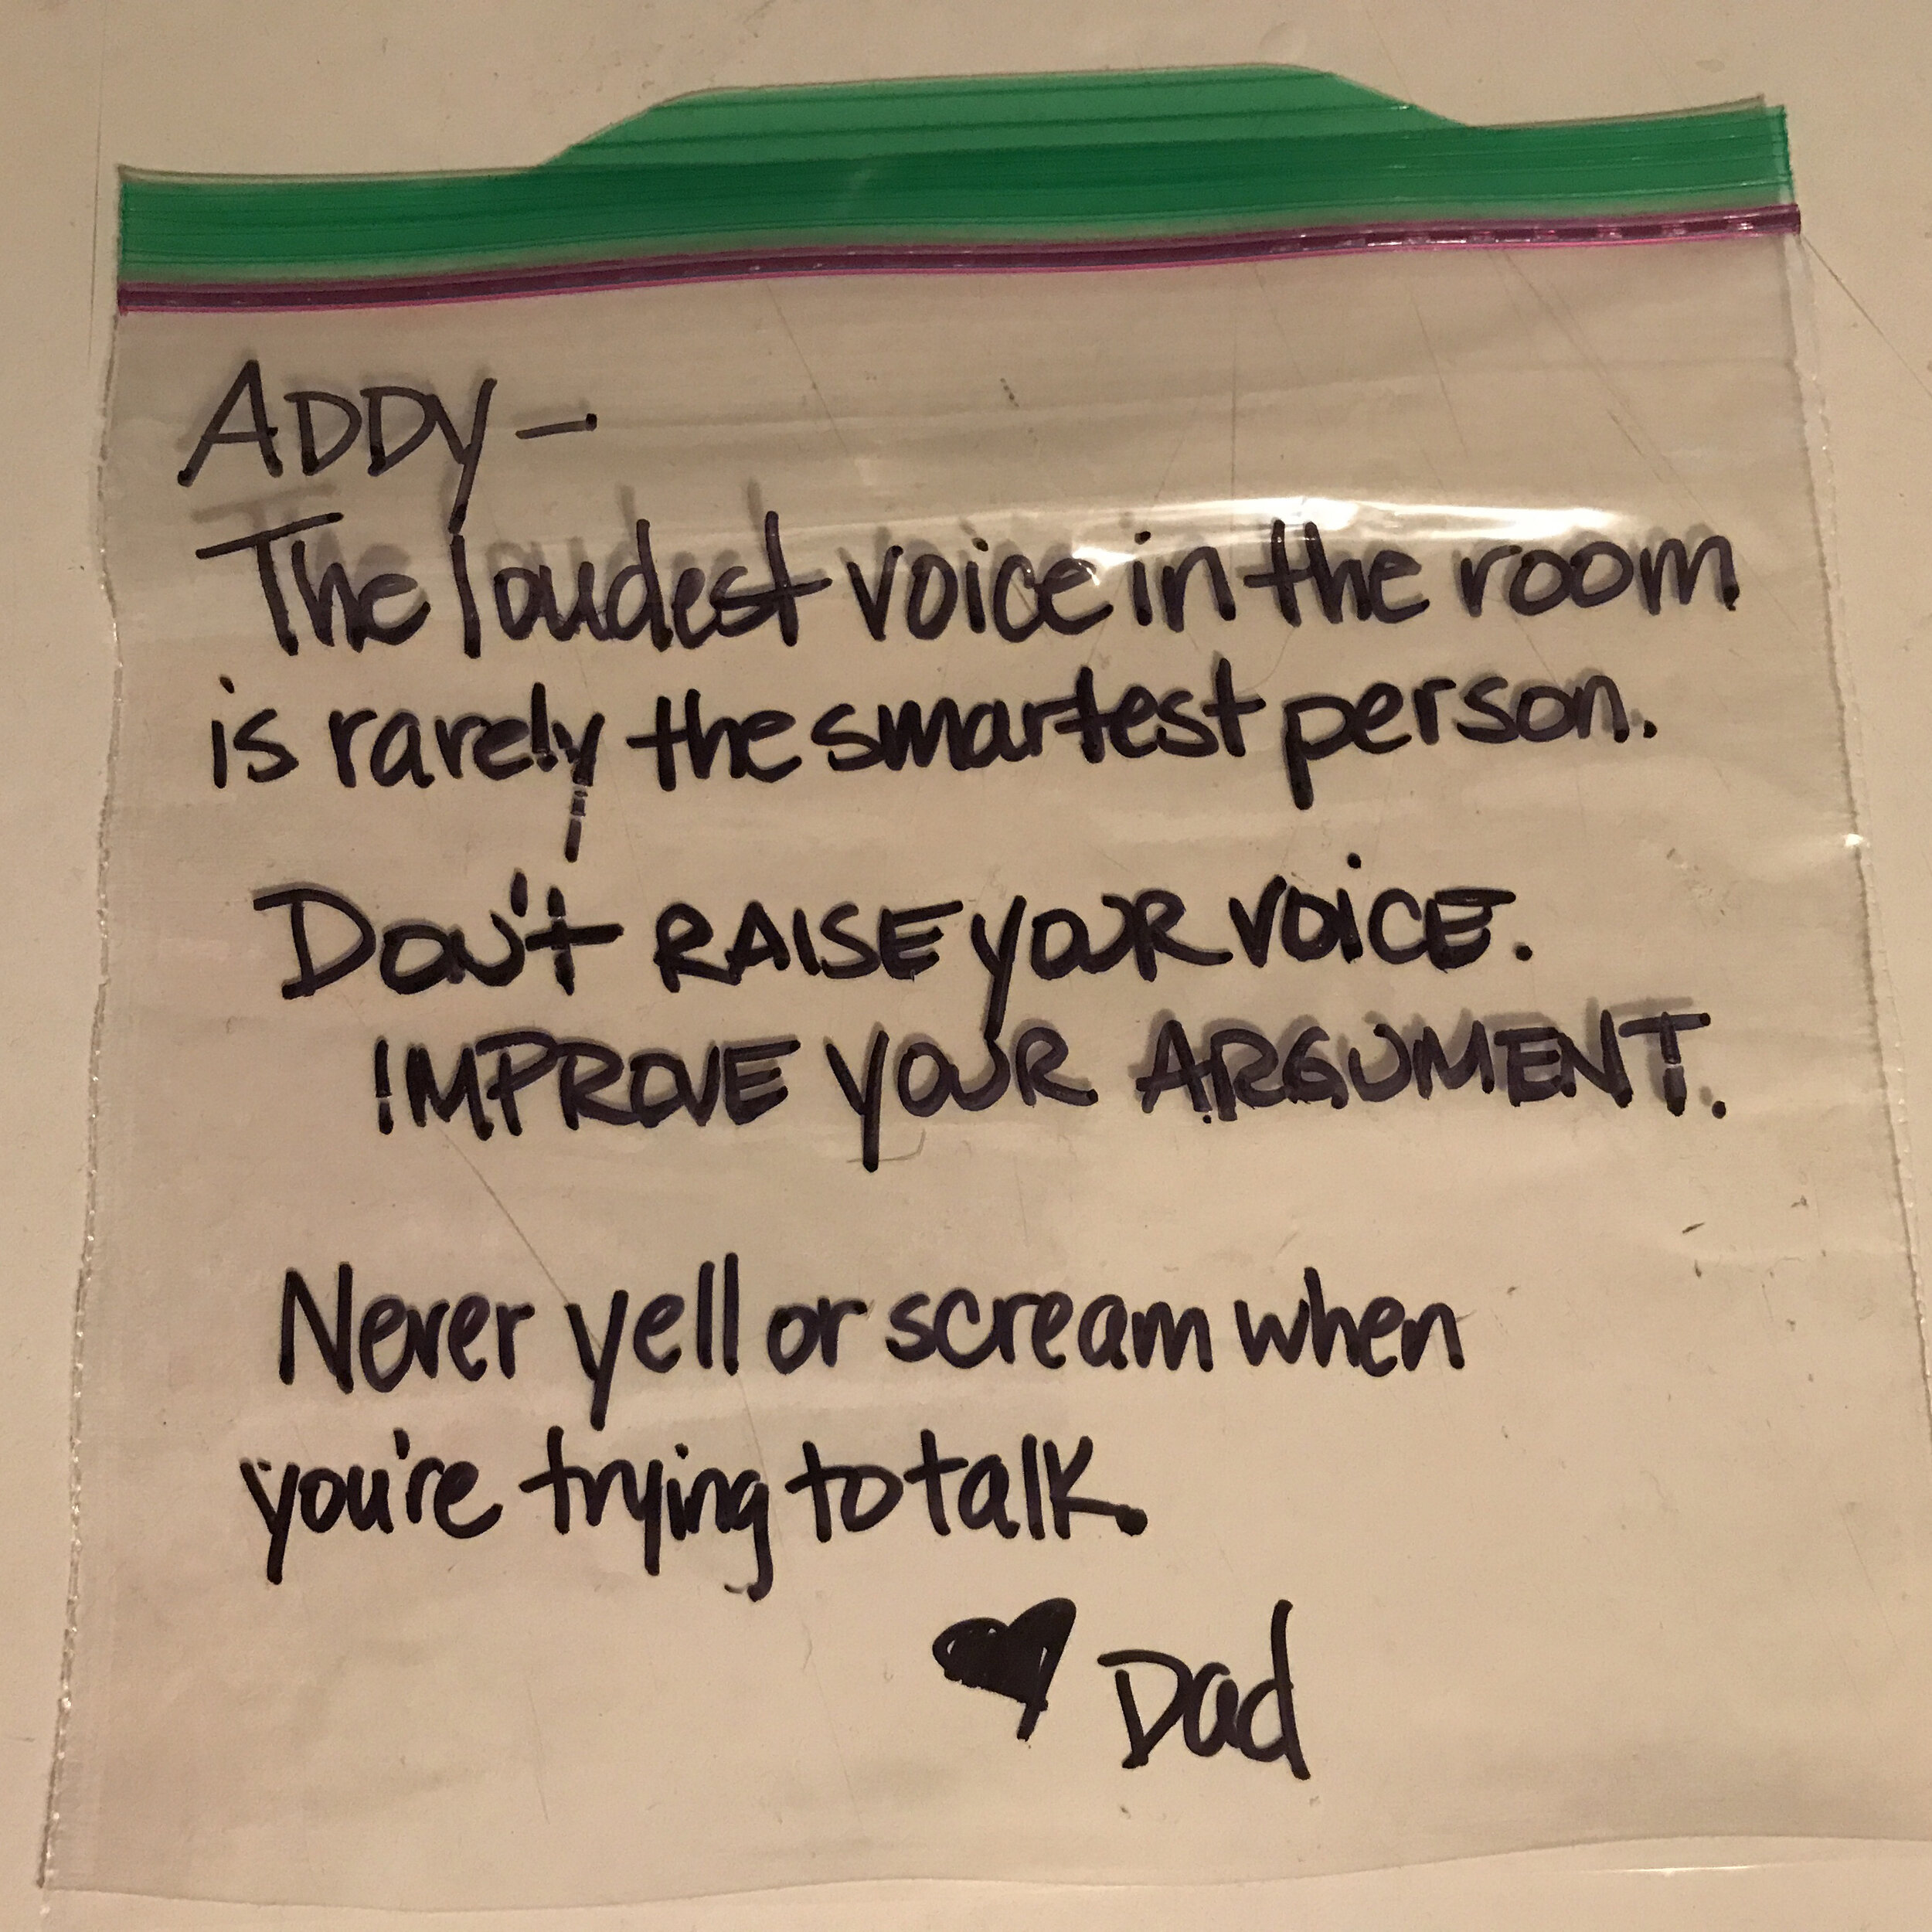 ADDY –
The loudest voice in the room
is rarely the smartest person.
DON'T RAISE YOUR VOICE.
IMPROVE YOUR ARGUMENT.
Never yell or scream when
you're trying to talk.
♥ Dad